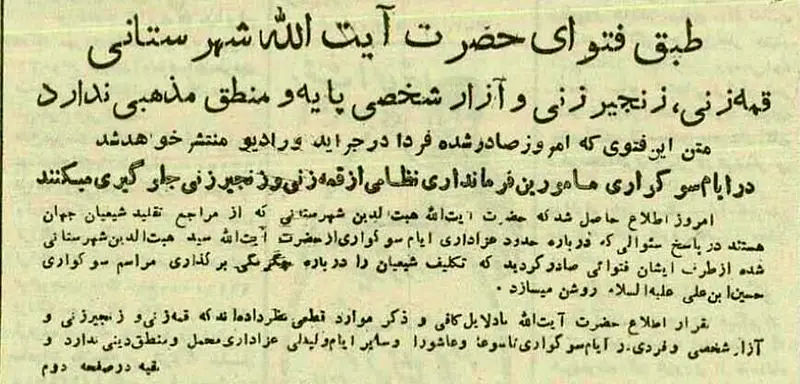 طبق فتوای حضرت آیت الله شهرستانی
قمه‌زنی، زنجیرزنی و آزار شخصی پایه و منطق مذهبی ندارد
متن این فتوی که امروز صادر شده فردا در جراید و رادیو منتشر خواهد شد
در ایام سوگواری مامورین فرمانداری نظامی از قمه‌زنی و زنجیرزنی جلوگیری میکنند
امروز اطلاع حاصل شد که حضرت آیت‌الله هبت‌الدین شهرستانی که از مراجع تقلید شیعیان جهان
هستند در پاسخ سئوالی که درباره حدود عزاداری ایام سوگواری از حضرت آیت‌الله سید هبت‌الدین شهرستانی
شده از طرف ایشان فتوائی صادر گردید که تکلیف شیعیان را درباره چگونگی برگذاری مراسم سوگواری
حسین ابن علی علیه السلام روشن میسازد .
بقرار اطلاع حضرت آیت‌الله با دلایل کافی و ذکر موارد قطعی نظر داده‌اند که قمه‌زنی و زنجیرزنی و
آزار شخصی و فردی در ایام سوگواری تاسوعا و عاشورا و سایر ایام و لیالی عزاداری محمل و منطق دینی ندارد و
بقیه در صفحه دوم